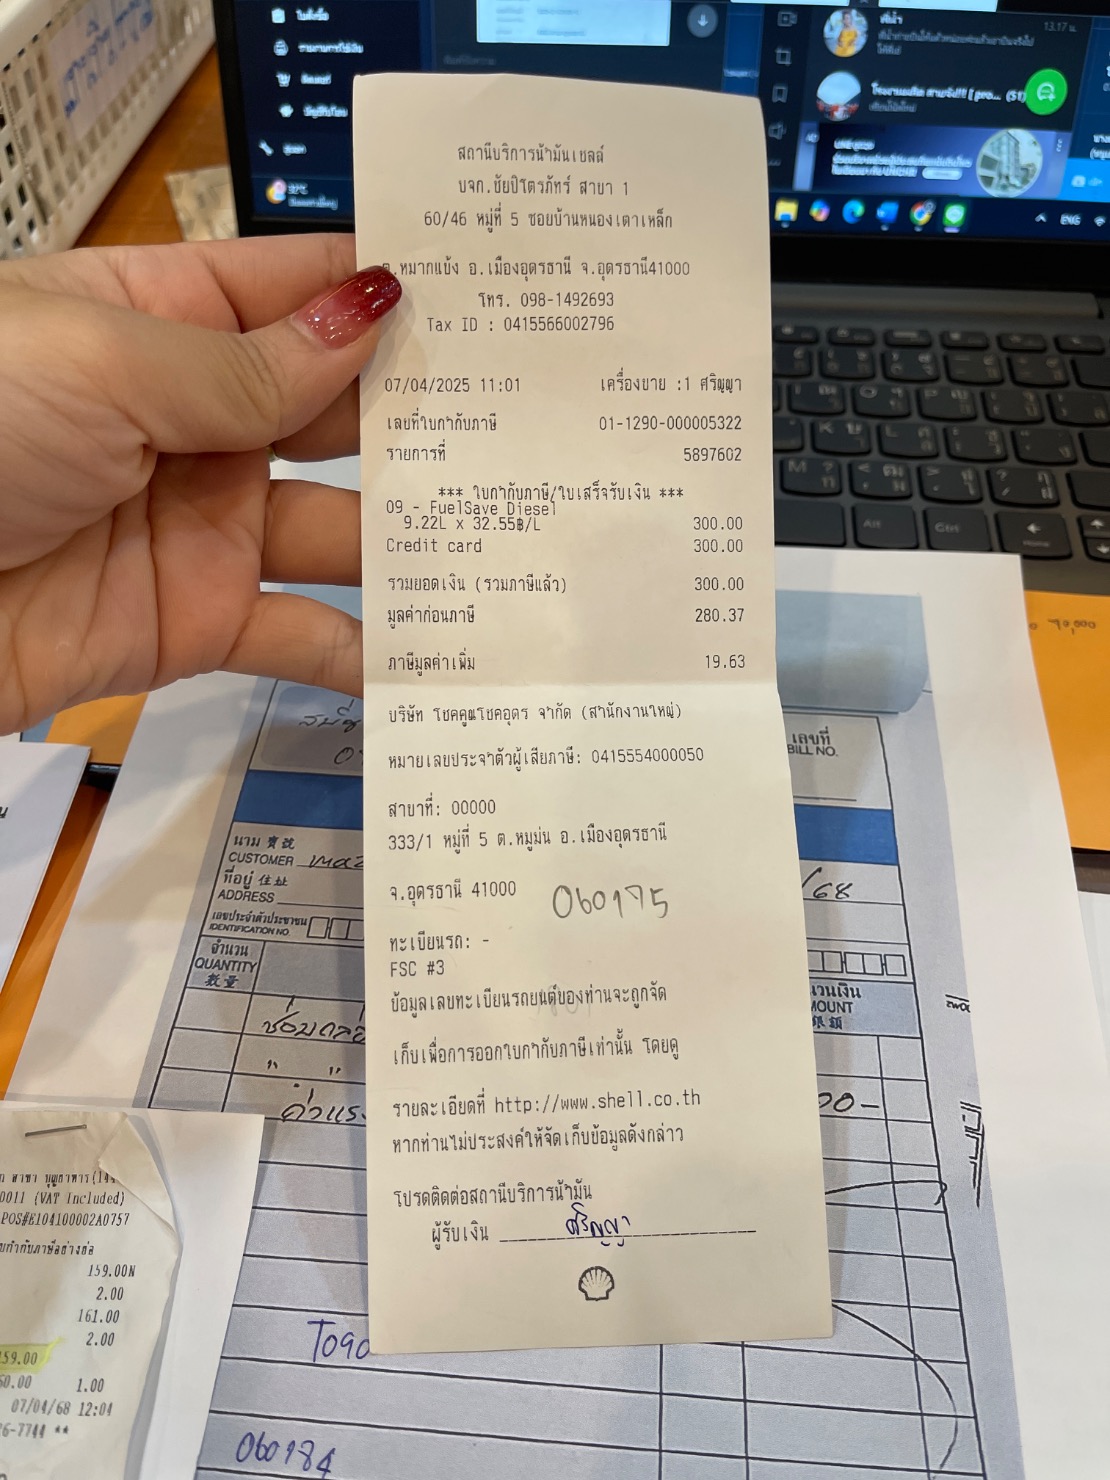 สถานีบริการน้ำมันเชลล์
บจก.ชัยปิโตรภัทร์ สาขา 1
60/46 หมู่ที่ 5 ซอยบ้านหนองเตาเหล็ก
ต.หมากแข้ง อ.เมืองอุดรธานี จ.อุดรธานี41000
โทร. 098-1492693
Tax ID : 0415566002796
07/04/2025 11:01 เครื่องขาย :1 ศริญญา
เลขที่ใบกำกับภาษี 01-1290-000005322
รายการที่ 5897602
*** ใบกำกับภาษี/ใบเสร็จรับเงิน ***
09 - FuelSave Diesel
9.22L x 32.55฿/L 300.00
Credit card 300.00
รวมยอดเงิน (รวมภาษีแล้ว) 300.00
มูลค่าก่อนภาษี 280.37
ภาษีมูลค่าเพิ่ม 19.63
บริษัท โชคคูณโชคอุดร จำกัด (สำนักงานใหญ่)
หมายเลขประจำตัวผู้เสียภาษี: 0415554000050
สาขาที่: 00000
333/1 หมู่ที่ 5 ต.หมูม่น อ.เมืองอุดรธานี
จ.อุดรธานี 41000
060175
ทะเบียนรถ: -
FSC #3
ข้อมูลเลขทะเบียนรถยนต์ของท่านจะถูกจัด
เก็บเพื่อการออกใบกำกับภาษีเท่านั้น โดยดู
รายละเอียดที่ http://www.shell.co.th
หากท่านไม่ประสงค์ให้จัดเก็บข้อมูลดังกล่าว
โปรดติดต่อสถานีบริการน้ำมัน
ผู้รับเงิน ศริญญา
เลขที่
BILL NO.
นาม 寶號
CUSTOMER
ที่อยู่ 住址
ADDRESS
/68
เลขประจำตัวประชาชน
IDENTIFICATION NO.
จำนวน
QUANTITY
数量
วนเงิน
MOUNT
銀額
ค่าแรง
00-
T090
060184
0011 (VAT Included)
POS#E104100002A0757
159.00N
2.00
161.00
2.00
59.00
1.00
07/04/68 12:04
6-7744 **
13.17 น.
ENG
Alt
Ctrl
Home